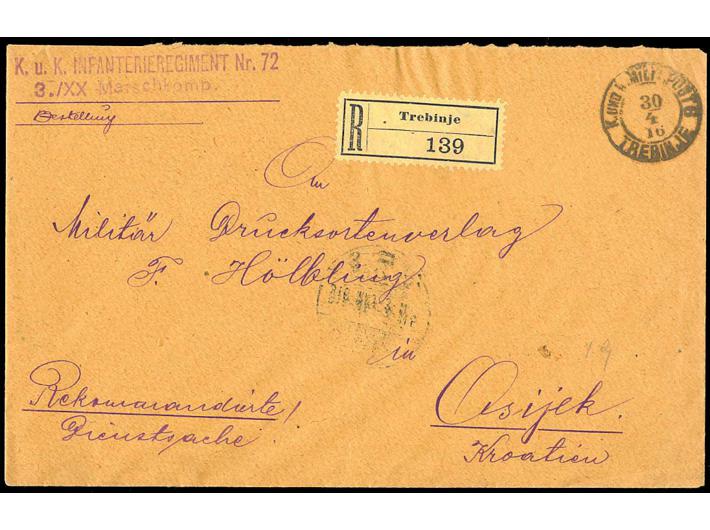 K. u. K. INFANTERIEREGIMENT Nr. 72
3./XX Marschkomp.
Bestellung
R
Trebinje
139
K. UND K. MILIT. POST 6
30
4
16
TREBINJE
An
Militär Drucksortenverlag
F. Hölbling
in
Rekomarandirte!
Dienstsache.
Osijek.
Kroatien